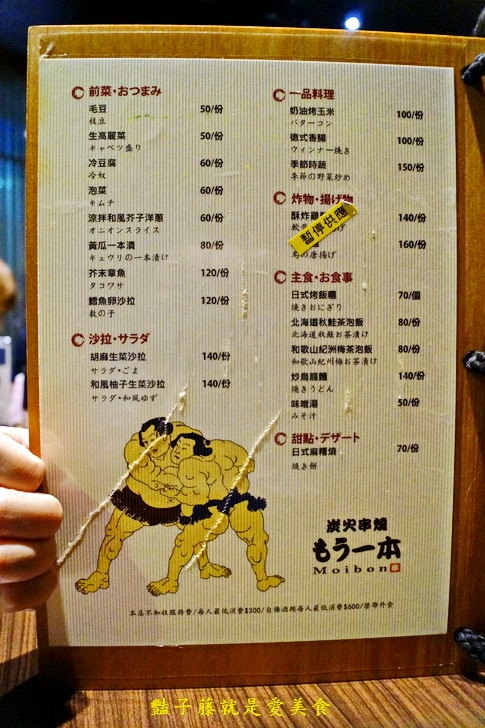 前菜・おつまみ
毛豆 50/份
枝豆
生高麗菜 50/份
キャベツ盛り
冷豆腐 60/份
冷奴
泡菜 60/份
キムチ
涼拌和風芥子洋蔥 60/份
オニオンスライス
黃瓜一本漬 80/份
キュウリの一本漬け
芥末章魚 120/份
タコワサ
鱈魚卵沙拉 120/份
数の子
沙拉・サラダ
胡麻生菜沙拉 140/份
サラダ・ごま
和風柚子生菜沙拉 140/份
サラダ・和風ゆず
一品料理
奶油烤玉米 100/份
バターコン
德式香腸 100/份
ウィンナー焼き
季節時蔬 150/份
季節の野菜炒め
炸物・揚げ物
酥炸雞 140/份
暫停供應
160/份
鳥の唐揚げ
主食・お食事
日式烤飯糰 70/個
焼きおにぎり
北海道秋鮭茶泡飯 80/份
北海道秋鮭お茶漬け
和歌山紀洲梅茶泡飯 80/份
和歌山紀州梅お茶漬け
炒烏龍麵 140/份
焼きうどん
味噌湯 50/份
みそ汁
甜點・デザート
日式麻糬燒 70/份
焼き餅
炭火串燒
もう一本
Moibon
本店不加收服務費/每人最低消費$300/自備酒類每人最低消費$600/禁帶外食
豔子藤就是愛美食